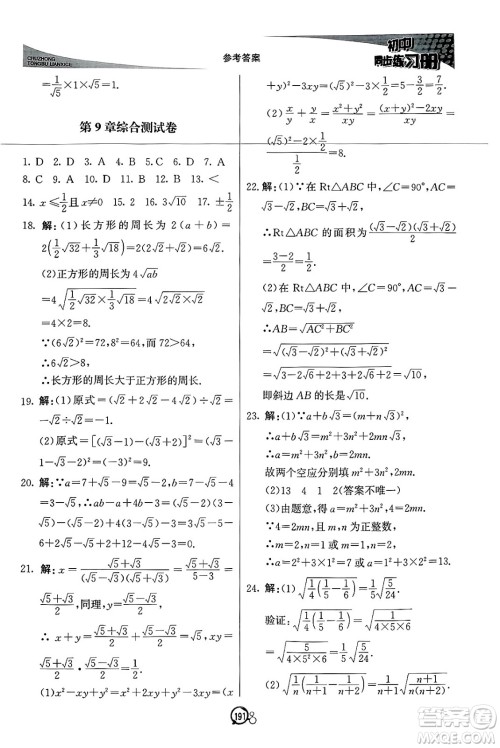 CHUZHONG
TONGBU LIANXICE
参考答案
初中
同步练习册
=\frac{1}{\sqrt{5}}×1×\sqrt{5}=1.
第9章综合测试卷
1. D 2. D 3. D 4. D 5. B 6. D 7. A
8. C 9. A 10. A 11. A 12. A 13. A
14. x≤\frac{1}{2}且x≠0 15. 0 16. 3\sqrt{10} 17. ±\frac{1}{2}
18. 解:(1)长方形的周长为 2(a+b)=
2(\frac{1}{2}\sqrt{32}+\frac{1}{3}\sqrt{18})=2(2\sqrt{2}+\sqrt{2})=6\sqrt{2}.
(2)正方形的周长为 4\sqrt{ab}
=4\sqrt{\frac{1}{2}\sqrt{32}×\frac{1}{3}\sqrt{18}}=4\sqrt{2\sqrt{2}×\sqrt{2}}
=4×2=8.
∵(6\sqrt{2})²=72,8²=64,72>64,
∴6\sqrt{2}>8,
∴长方形的周长大于正方形的周长.
19. 解:(1)原式=(\sqrt{2}+2\sqrt{2}-4\sqrt{2})÷\sqrt{2}
=-\sqrt{2}÷\sqrt{2}=-1.
(2)原式=[(\sqrt{3}-1)(\sqrt{3}+1)]²
=[(\sqrt{3})²-1²]²=(3-1)²=4.
20. 解:∵a=7+\sqrt{5}-9=\sqrt{5}-2,b=7-\sqrt{5}-4
=3-\sqrt{5},∴ab-a+4b-3
=(\sqrt{5}-2)(3-\sqrt{5})-(\sqrt{5}-2)+4(3-\sqrt{5})-3
=3\sqrt{5}-5-6+2\sqrt{5}-\sqrt{5}+2+12-4\sqrt{5}-3=0.
21. 解:x=\frac{1}{\sqrt{5}-\sqrt{3}}=\frac{\sqrt{5}+\sqrt{3}}{(\sqrt{5}-\sqrt{3})(\sqrt{5}+\sqrt{3})}=\frac{\sqrt{5}+\sqrt{3}}{5-3}=
\frac{\sqrt{5}+\sqrt{3}}{2},同理,y=\frac{\sqrt{5}-\sqrt{3}}{2},
∴x+y=\frac{\sqrt{5}+\sqrt{3}}{2}+\frac{\sqrt{5}-\sqrt{3}}{2}=\sqrt{5},xy=
\frac{\sqrt{5}+\sqrt{3}}{2}·\frac{\sqrt{5}-\sqrt{3}}{2}=\frac{1}{2}.
(1)x²-xy+y²=x²+2xy+y²-3xy=(x
+y)²-3xy=(\sqrt{5})²-3×\frac{1}{2}=\frac{7}{2}.
(2)\frac{x}{y}+\frac{y}{x}=\frac{x²+y²}{xy}=\frac{(x+y)²-2xy}{xy}=
\frac{(\sqrt{5})²-2×\frac{1}{2}}{\frac{1}{2}}=8.
22. 解:(1)∵在Rt△ABC中,∠C=90°,AC=
\sqrt{3}-\sqrt{2},BC=\sqrt{3}+\sqrt{2},
∴Rt△ABC的面积为\frac{(\sqrt{3}-\sqrt{2})(\sqrt{3}+\sqrt{2})}{2}=
\frac{3-2}{2}=\frac{1}{2}.
(2)∵在Rt△ABC中,∠C=90°,AC=
\sqrt{3}-\sqrt{2},BC=\sqrt{3}+\sqrt{2},
∴AB=\sqrt{AC²+BC²}
=\sqrt{(\sqrt{3}-\sqrt{2})²+(\sqrt{3}+\sqrt{2})²}
=\sqrt{3-2\sqrt{6}+2+3+2\sqrt{6}+2}=\sqrt{10},
即斜边AB的长为\sqrt{10}.
23. 解:(1)∵a+b\sqrt{3}=(m+n\sqrt{3})²,
∴a+b\sqrt{3}=m²+3n²+2mn\sqrt{3}.
∴a=m²+3n²,b=2mn.
故两个空应分别填m²+3n²,2mn.
(2)13 4 1 2(答案不唯一)
(3)由题意,得a=m²+3n²,b=2mn.
∵4=2mn,且m,n为正整数,
∴m=2,n=1或m=1,n=2.
∴a=2²+3×1²=7或a=1²+3×2²=13.
24. 解:(1)\sqrt{\frac{1}{4}(\frac{1}{5}-\frac{1}{6})}=\frac{1}{5}\sqrt{\frac{5}{24}}.
验证:\sqrt{\frac{1}{4}(\frac{1}{5}-\frac{1}{6})}=\sqrt{\frac{1}{4×5×6}}
=\sqrt{\frac{5}{4×5²×6}}=\frac{1}{5}\sqrt{\frac{5}{24}}.
(2)\sqrt{\frac{1}{n}(\frac{1}{n+1}-\frac{1}{n+2})}=\frac{1}{n+1}\sqrt{\frac{n+1}{n(n+2)}}.
191